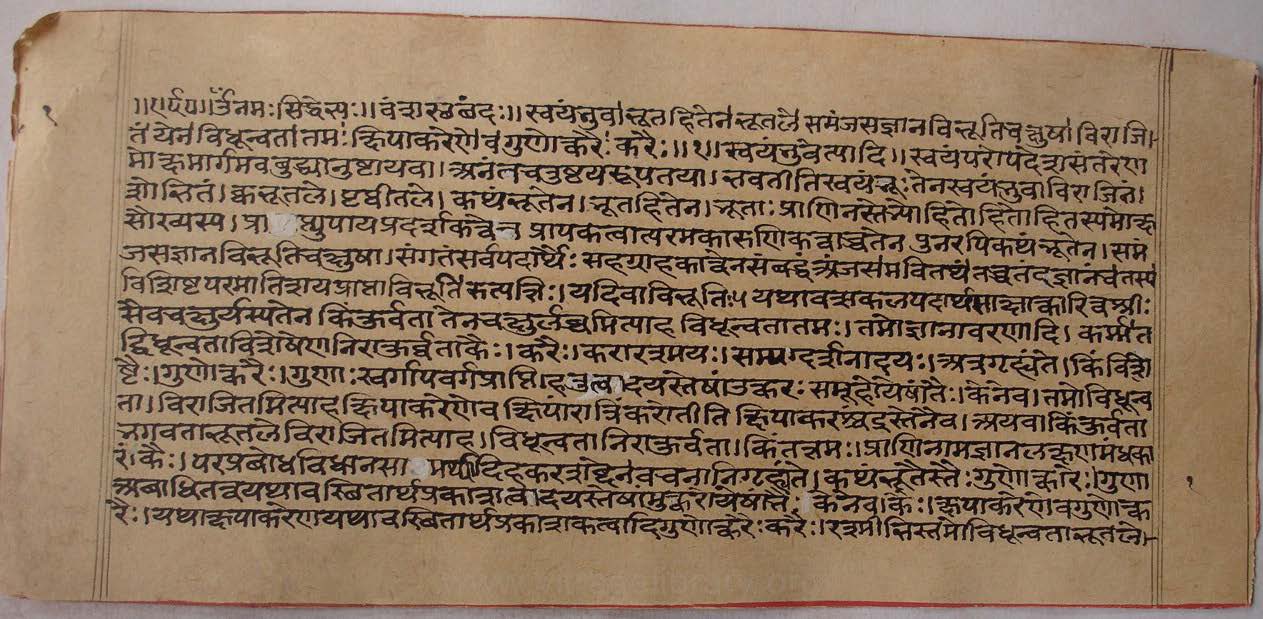 १
॥ए र्द॰॥ॐनमः।सिद्धेभ्यः॥वंशस्छछंदः॥स्वयंभुवाभूतहितेनभूतले समंजसज्ञानविभूतिचक्षुषा।विराजि
तं येन विधून्वता तमः क्षिपाकरेणेव गुणोत्करैः करैः॥१॥स्वयंभुवेत्यादि॥स्वयंपरोपदेशमंतरेण
मोक्षमार्गमवबुद्ध्यानुष्टायवा।अनंतचतुष्टयरूपतया।भवतीतिस्वयंभूःतेनस्वयंभुवाविराजितं।
शोभितं।क्वभूतले।पृथ्वीतले।कथंभूतेन।भूतहितेन।भूताःप्राणिनस्तेभ्योहितोहितोहितस्यमोक्ष
सौख्यस्य।प्रा प्त्युपायप्रदर्शकत्वेन प्रापकत्वात्परमकारुणिकत्वाच्चतेन पुनरपिकथंभूतेन।समं
जसज्ञानविभूतिचक्षुषा।संगतंसर्वपदार्थैःसहग्राहकत्वेनसंबद्धंअंजसमवितथंतच्चतद्ज्ञानंचतस्य
विशिष्टपरमातिशयप्राप्ताविभूतिरुत्पत्तिः।यदिवाविभूतिः यथावत्सकलपदार्थसाक्षात्कारित्वश्रीः
सैवचक्षुर्यस्यतेन किंकुर्वता तेनचक्षुर्लब्धमित्याह विधून्वतातमः।तमोज्ञानावरणादि।कर्म्मत
द्विधून्वताविशेषेणनिराकुर्व्वताकैः।करैः।कराश्रमयः।सम्यग्दर्शनादयः।अत्रगृह्यंते।किंविशि
ष्टैः।गुणोत्करैः।गुणाःस्वर्गापवर्गप्राप्तिहेतुत्वादयस्तेषांउत्करःसमूहोयेषांतैः।केनेव।तमोविधून्व
ता।विराजितमित्याह क्षिपाकरेणेव क्षिपांरात्रिंकरोतीति क्षिपाकरश्चंद्रस्तेनेव।अथवा।किंकुर्वता
भगवताभूतले विराजितमित्याह।विधून्वतानिराकुर्वता।किंतत्तमः।प्राणिनामज्ञानलक्षणमंधका
रं।कैः।परप्रबोधविधानसा मर्थ्यादिहकरशब्देनवचनानिगृह्यंते।कथंभूतैस्तैः।गुणोत्करैः।गुणा
अबाधितत्वयथावस्थितार्थप्रकाशत्वादयस्तेषामुत्करोयेषांतैः।केनेव।कैः।क्षिपाकरेणेवगुणोत्क
रैः।यथाक्षपाकरेणयथावस्थितार्थप्रकाशकत्वादिगुणोत्करैःकरैः।रश्मीभिस्तमोविधून्वताभूतले
१